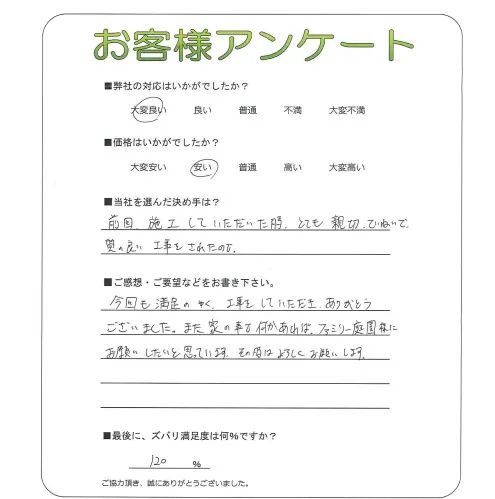 お客様アンケート
■弊社の対応はいかがでしたか？
大変良い 良い 普通 不満 大変不満
■価格はいかがでしたか？
大変安い 安い 普通 高い 大変高い
■当社を選んだ決め手は？
前回、施工していただいた時、とても親切、ていねいで、
質の良い工事をされたので。
■ご感想・ご要望などをお書き下さい。
今回も満足のゆく、工事をしていただき、ありがとう
ございました。また家の事で何かあれば、ファミリー庭園様に
お願いしたいと思っています。その時はよろしくお願いします。
■最後に、ズバリ満足度は何%ですか？
120 %
ご協力頂き、誠にありがとうございました。